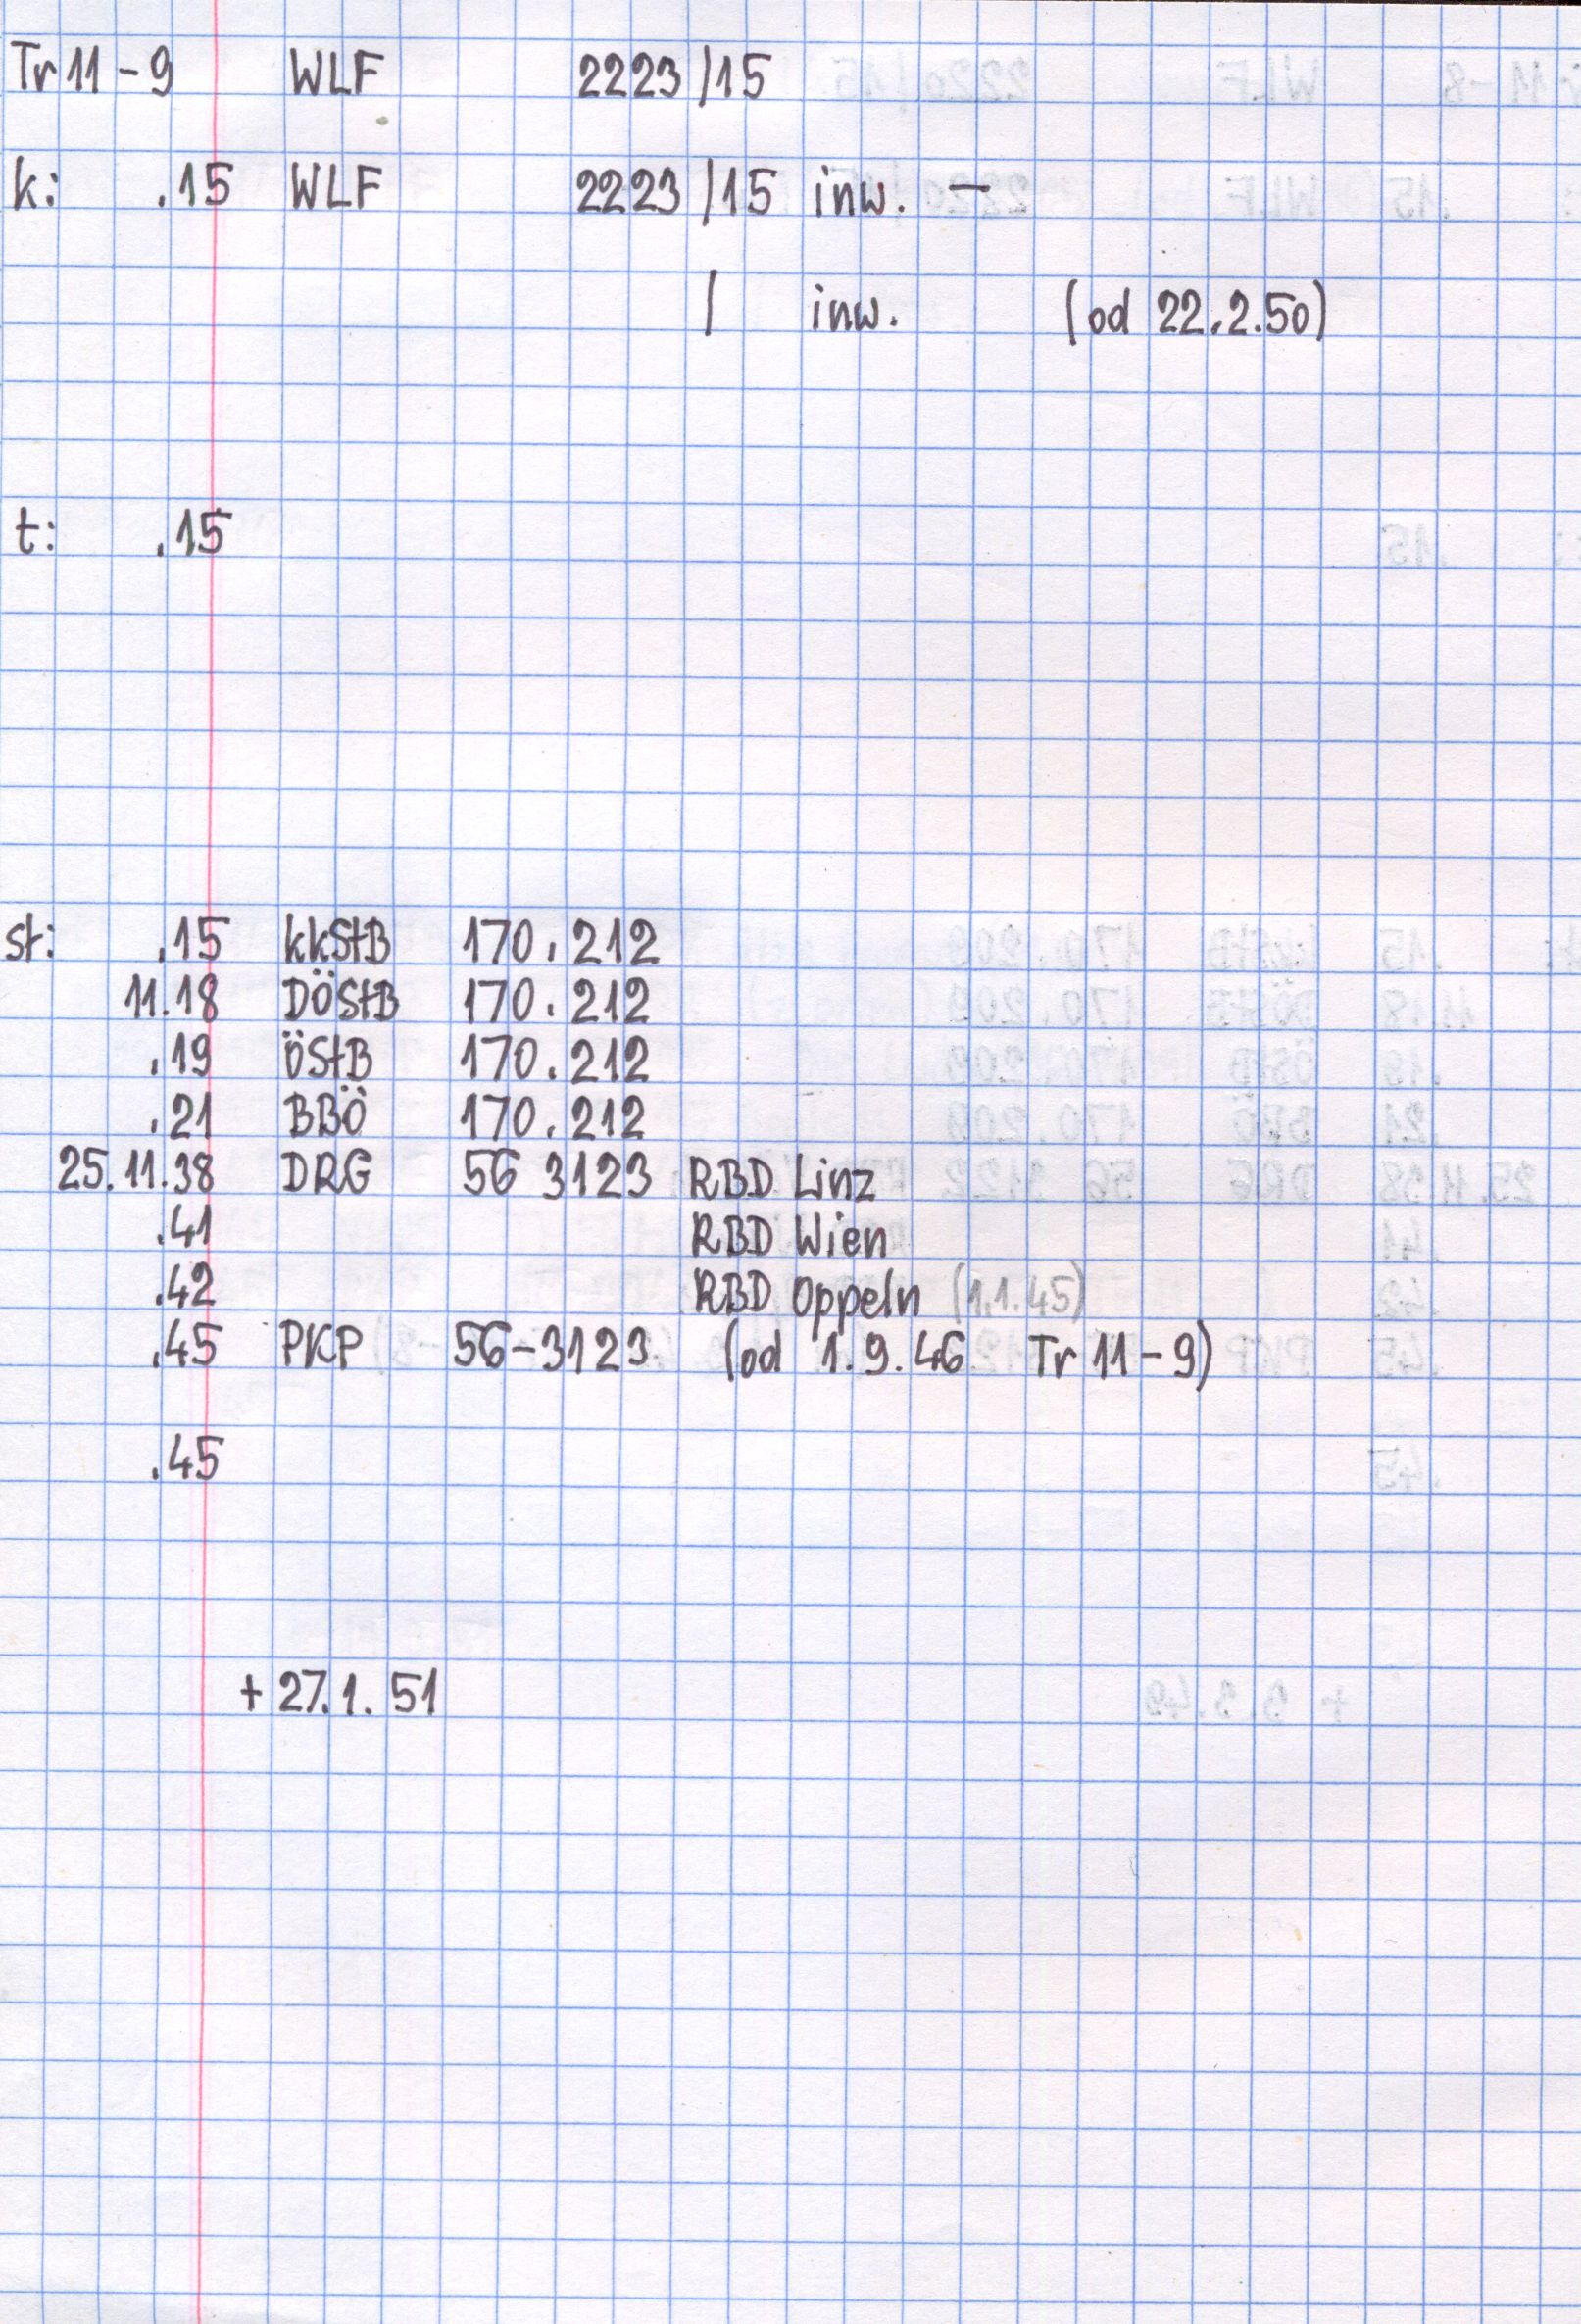 Tr 11 - 9 WLF 2223 / 15
k: .15 WLF 2223 / 15 inw. —
/ inw. (od 22.2.50)
t: .15
st: .15 kkStB 170.212
11.18 DÖStB 170.212
.19 ÖStB 170.212
.21 BBÖ 170.212
25.11.38 DRG 56 3123 RBD Linz
.41 RBD Wien
.42 RBD Oppeln (1.1.45)
.45 PKP 56-3123 (od 1.9.46 Tr 11 - 9)
.45
+ 27.1.51